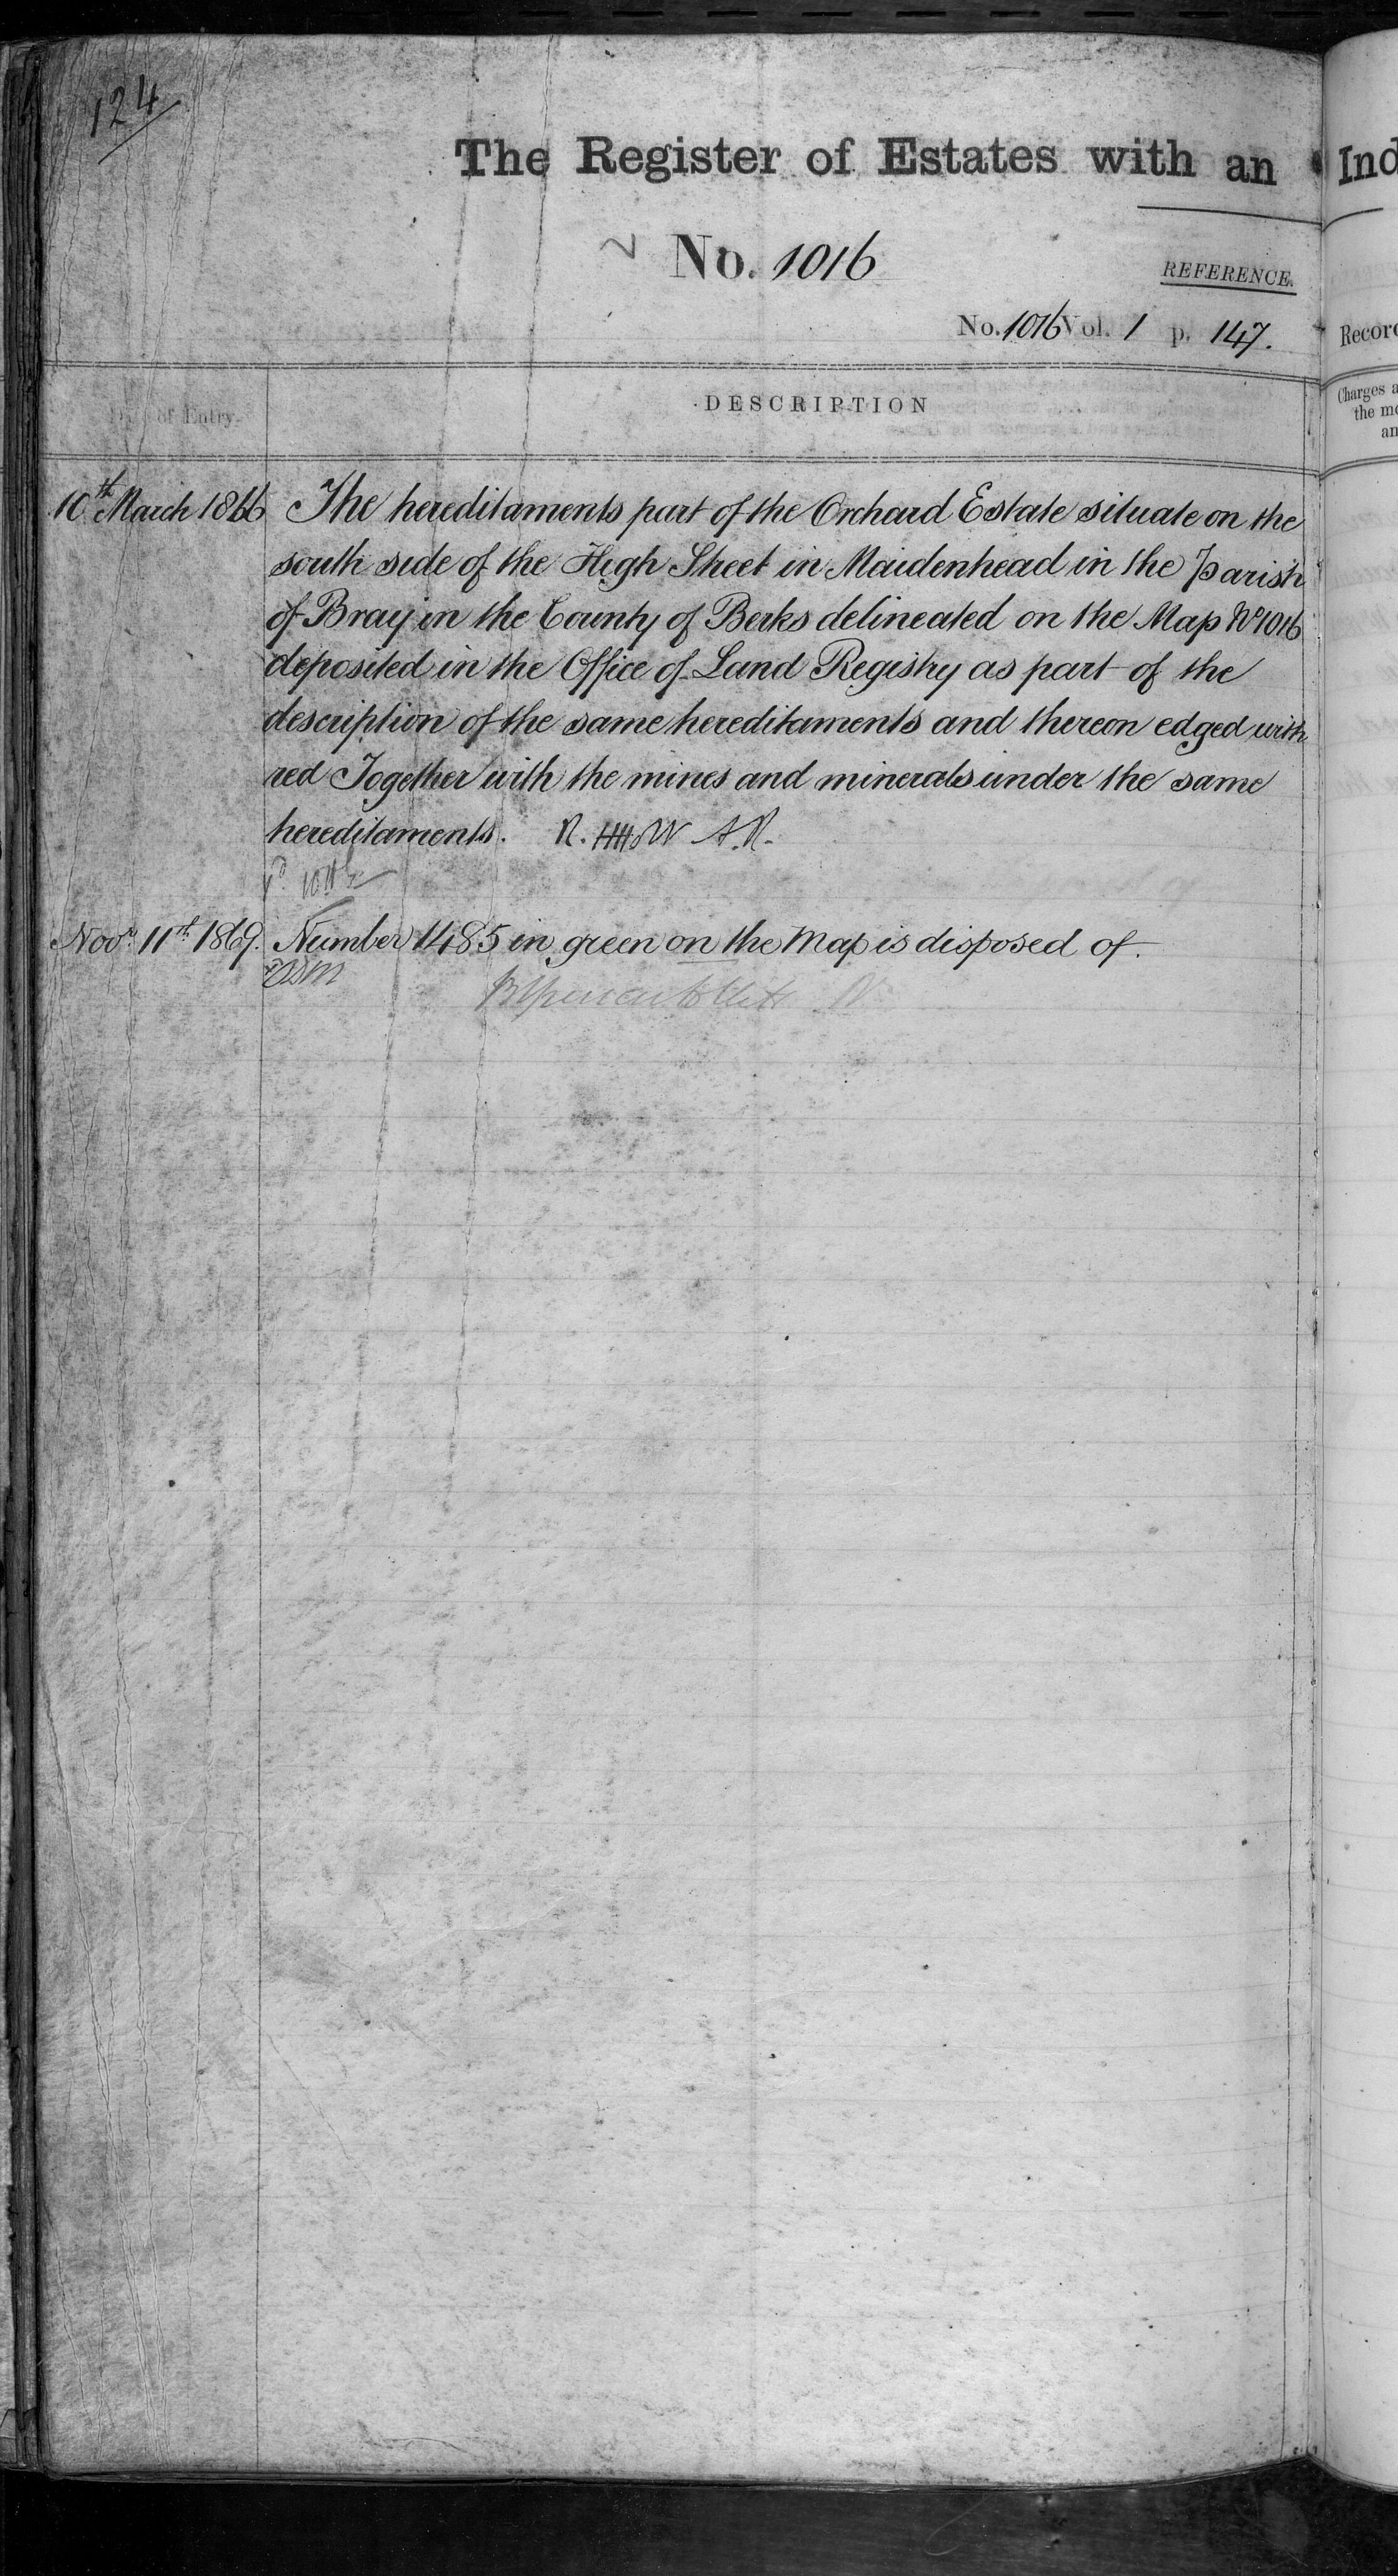 124
The Register of Estates with an Ind
No. 1016
REFERENCE.
No. 1016 Vol. 1 p. 147.
Record
of Entry.
DESCRIPTION
Charges a
the mo
an
10th March 1866 The hereditaments part of the Orchard Estate situate on the
south side of the High Street in Maidenhead in the Parish
of Bray in the County of Berks delineated on the Map No 1016
deposited in the Office of Land Registry as part of the
description of the same hereditaments and thereon edged with
red Together with the mines and minerals under the same
hereditaments. A.R.
Novr. 11th 1869. Number 1485 in green on the Map is disposed of.